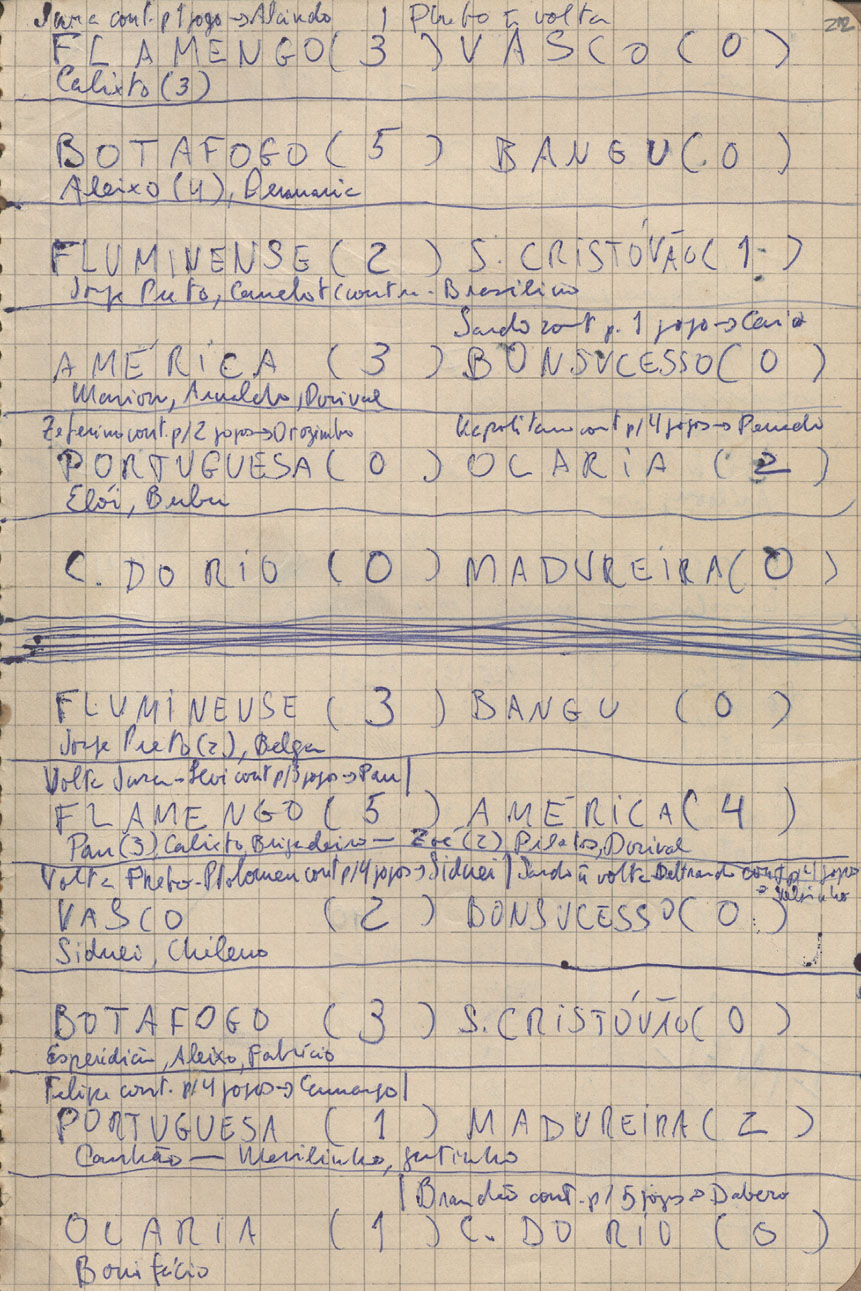 Jura cont. p 1 jogo → Alcindo | Preto à volta 212
FLAMENGO (3) VASCO (0)
Calixto (3)
BOTAFOGO (5) BANGU (0)
Aleixo (4),
FLUMINENSE (2) S. CRISTÓVÃO (1)
Jorge Preto, Camelot (contra - Brasilino
Sardo cont p. 1 jogo →
AMÉRICA (3) BONSUCESSO (0)
Marion, Arnaldo, Dorival
Zeferino cont. p/2 jogos → Orozimbo Napolitano cont p/4 jogos → Penedo
PORTUGUESA (0) OLARIA (2)
Elói, Bubu
C. DO RIO (0) MADUREIRA (0)
FLUMINENSE (3) BANGU (0)
Jorge Preto (2), Belga
Volta Jura - Levi cont p/3 jogos → Pan |
FLAMENGO (5) AMÉRICA (4)
Pan (3) Calixto, Brigadeiro — Zoé (2) Pilatos, Dorival
Volta Preto - Ptolomeu cont p/4 jogos → Sidnei | Sardo à volta Beltrando cont. p/4 jogos
VASCO (2) BONSUCESSO (0)
Sidnei, Chileno
BOTAFOGO (3) S. CRISTÓVÃO (0)
Esperidião, Aleixo, Fabrício
Felipe cont. p/4 jogos → Camargo |
PORTUGUESA (1) MADUREIRA (2)
Canhão — Marilinho, Jutinho
| Brandão cont. p/5 jogos → Dabero
OLARIA (1) C. DO RIO (0)
Bonifácio